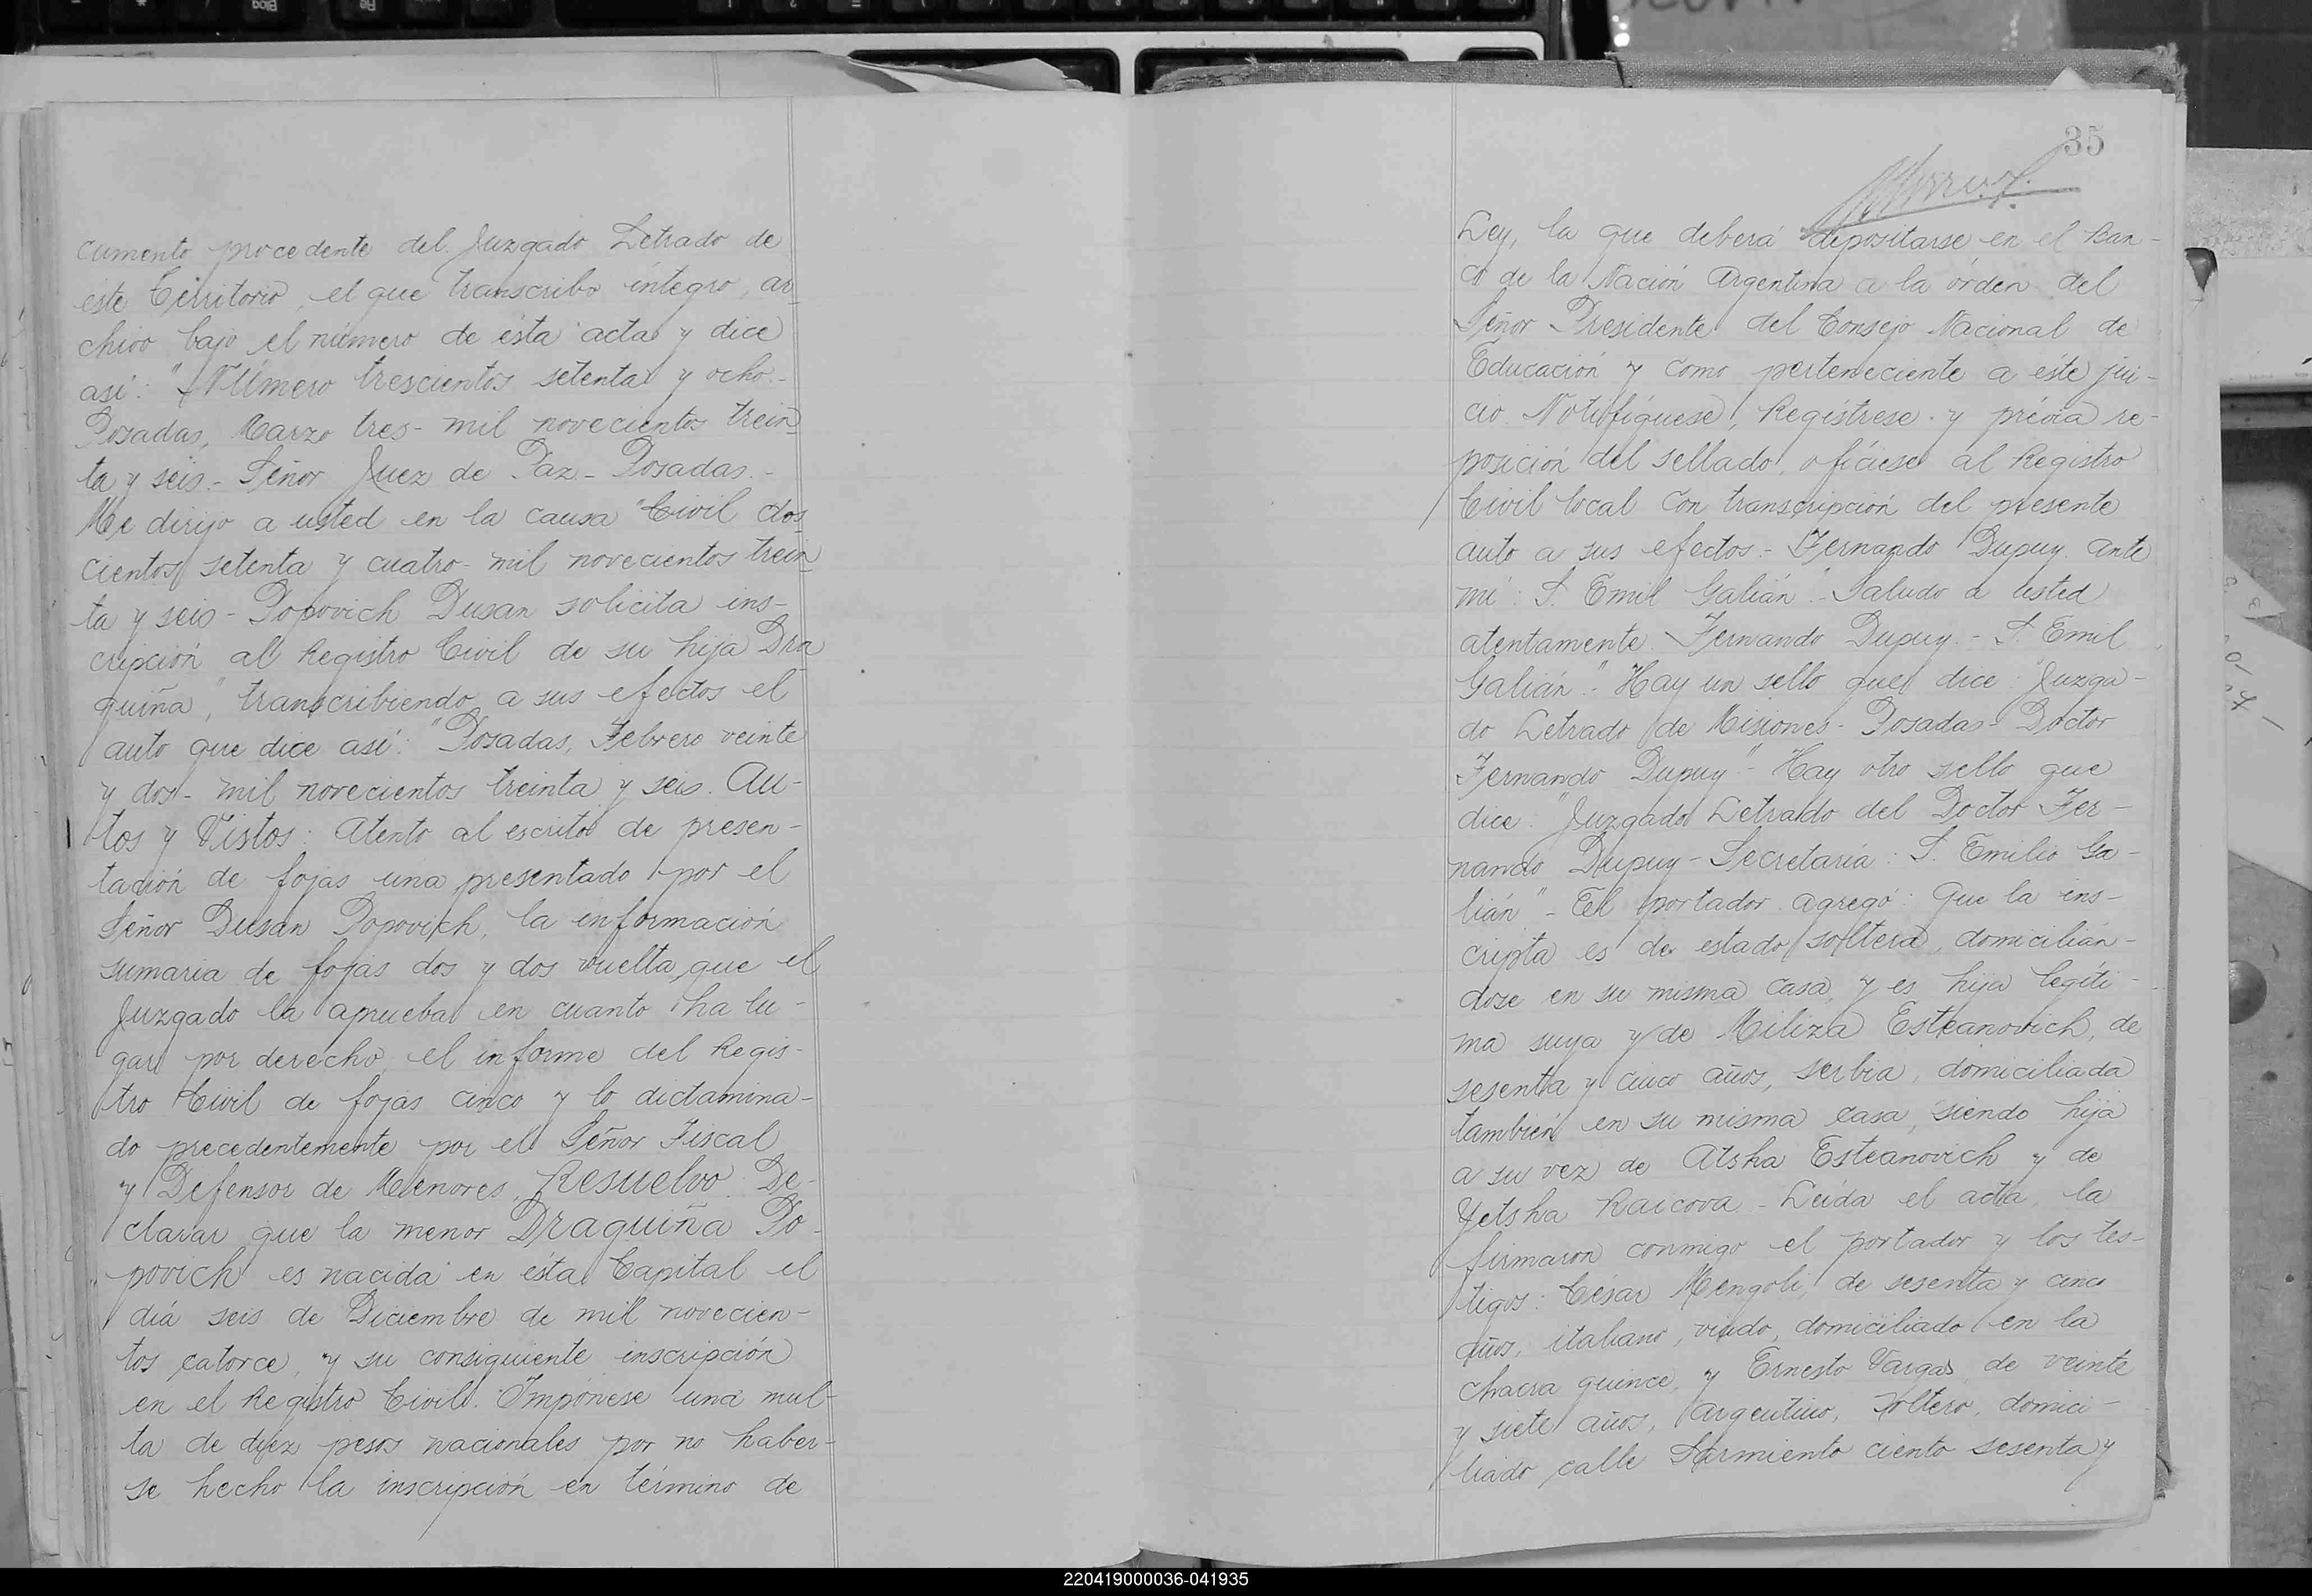 cumento procedente del Juzgado Letrado de
este Territorio, el que transcribo íntegro, ar-
chivo bajo el número de ésta acta y dice
así: "Número trescientos setenta y ocho.-
Posadas, Marzo tres- mil novecientos trein-
ta y seis.- Señor Juez de Paz- Posadas.-
Me dirijo a usted en la causa "Civil dos
cientos setenta y cuatro- mil novecientos trein-
ta y seis- Popovich Dusan solicita ins-
cripción al Registro Civil de su hija Dra
quiña", transcribiendo a sus efectos el
auto que dice así: "Posadas, Febrero veinte
y dos- mil novecientos treinta y seis. Au-
tos y Vistos: Atento al escrito de presen-
tación de fojas una presentado por el
Señor Dusan Popovich, la información
sumaria de fojas dos y dos vuelta, que el
Juzgado la aprueba en cuanto ha lu-
gar por derecho, el informe del Regis-
tro Civil de fojas cinco y lo dictamina-
do precedentemente por el Señor Fiscal
y Defensor de Menores, Resuelvo: De-
clarar que la menor Draquiña Po-
povich es nacida en ésta Capital el
día seis de Diciembre de mil novecien-
tos catorce, y su consiguiente inscripción
en el Registro Civil. Impónese una mul-
ta de diez pesos nacionales por no haber-
se hecho la inscripción en término de
35
Ley, la que deberá depositarse en el Ban-
co de la Nación Argentina a la órden del
Señor Presidente del Consejo Nacional de
Educación y como perteneciente a éste jui-
cio. Notifíquese, Regístrese y prévia re-
posición del sellado, ofíciese al Registro
Civil local con transcripción del presente
auto a sus efectos.- Fernando Dupuy. Ante
mí: S. Emil Galián".- Saludo a usted
atentamente. Fernando Dupuy.- S. Emil
Galián".- Hay un sello que dice: "Juzga-
do Letrado de Misiones- Posadas- Doctor
Fernando Dupuy"- Hay otro sello que
dice: "Juzgado Letrado del Doctor Fer-
nando Dupuy- Secretaría: S. Emilio Ga-
lián"- El portador agregó: Que la ins-
cripta es de estado soltera, domicilián-
dose en su misma casa y es hija legíti-
ma suya y de Miliza Esteanovich, de
sesenta y cinco años, serbia, domiciliada
también en su misma casa, siendo hija
a su vez de Atsha Esteanovich y de
Yetsha Raicova.- Leída el acta, la
firmaron conmigo el portador y los tes-
tigos: César Mengoli, de sesenta y cinco
años, italiano, viudo, domiciliado en la
chacra quince, y Ernesto Vargas, de veinte
y siete años, argentino, soltero, domici-
liado calle Sarmiento ciento sesenta y
220419000036-041935